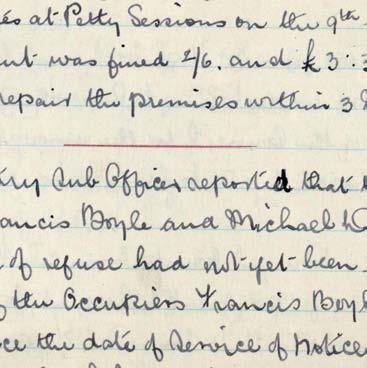 es at Petty Sessions on the 9th
nt was fined 2/6. and £3:3
repair the premises within 3
try Sub Officer reported that
ancis Boyle and Michael
of refuse had not yet been
the Occupiers Francis Boyl
ce the date of Service of Notice